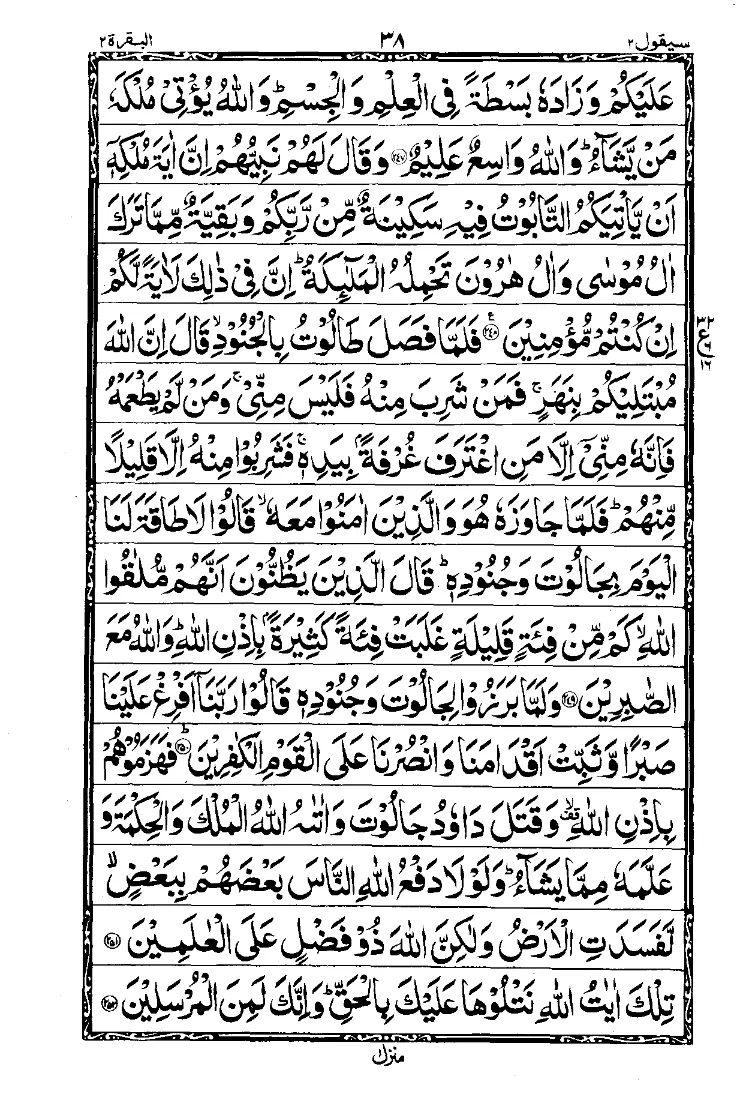 سيقول ٢ ٣٨ البقرة ٢
عَلَيْكُمْ وَزَادَهٗ بَسْطَةً فِى الْعِلْمِ وَالْجِسْمِ ؕ وَاللّٰهُ يُؤْتِىْ مُلْكَهٗ
مَنْ يَّشَآءُ ؕ وَاللّٰهُ وَاسِعٌ عَلِيْمٌ ﴿۲۴۷﴾ وَقَالَ لَهُمْ نَبِيُّهُمْ اِنَّ اٰيَةَ مُلْكِهٖۤ
اَنْ يَّاْتِيَكُمُ التَّابُوْتُ فِيْهِ سَكِيْنَةٌ مِّنْ رَّبِّكُمْ وَبَقِيَّةٌ مِّمَّا تَرَكَ
اٰلُ مُوْسٰى وَاٰلُ هٰرُوْنَ تَحْمِلُهُ الْمَلٰٓئِكَةُ ؕ اِنَّ فِىْ ذٰلِكَ لَاٰيَةً لَّكُمْ
اِنْ كُنْتُمْ مُّؤْمِنِيْنَ ﴿۲۴۸﴾ فَلَمَّا فَصَلَ طَالُوْتُ بِالْجُنُوْدِ ۙ قَالَ اِنَّ اللّٰهَ
٣٢ ع ٩ ١٦
مُبْتَلِيْكُمْ بِنَهَرٍ ۚ فَمَنْ شَرِبَ مِنْهُ فَلَيْسَ مِنِّىْ ۚ وَمَنْ لَّمْ يَطْعَمْهُ
فَاِنَّهٗ مِنِّىْۤ اِلَّا مَنِ اغْتَرَفَ غُرْفَةًۢ بِيَدِهٖ ۚ فَشَرِبُوْا مِنْهُ اِلَّا قَلِيْلًا
مِّنْهُمْ ؕ فَلَمَّا جَاوَزَهٗ هُوَ وَالَّذِيْنَ اٰمَنُوْا مَعَهٗ ۙ قَالُوْا لَا طَاقَةَ لَنَا
الْيَوْمَ بِجَالُوْتَ وَجُنُوْدِهٖ ؕ قَالَ الَّذِيْنَ يَظُنُّوْنَ اَنَّهُمْ مُّلٰقُوا
اللّٰهِ ۙ كَمْ مِّنْ فِئَةٍ قَلِيْلَةٍ غَلَبَتْ فِئَةً كَثِيْرَةًۢ بِاِذْنِ اللّٰهِ ؕ وَاللّٰهُ مَعَ
الصّٰبِرِيْنَ ﴿۲۴۹﴾ وَلَمَّا بَرَزُوْا لِجَالُوْتَ وَجُنُوْدِهٖ قَالُوْا رَبَّنَاۤ اَفْرِغْ عَلَيْنَا
صَبْرًا وَّثَبِّتْ اَقْدَامَنَا وَانْصُرْنَا عَلَى الْقَوْمِ الْكٰفِرِيْنَ ﴿۲۵۰﴾ؕ فَهَزَمُوْهُمْ
بِاِذْنِ اللّٰهِ ۙقف وَقَتَلَ دَاوٗدُ جَالُوْتَ وَاٰتٰىهُ اللّٰهُ الْمُلْكَ وَالْحِكْمَةَ وَ
عَلَّمَهٗ مِمَّا يَشَآءُ ؕ وَلَوْ لَا دَفْعُ اللّٰهِ النَّاسَ بَعْضَهُمْ بِبَعْضٍ ۙ
لَّفَسَدَتِ الْاَرْضُ وَلٰكِنَّ اللّٰهَ ذُوْ فَضْلٍ عَلَى الْعٰلَمِيْنَ ﴿۲۵۱﴾
تِلْكَ اٰيٰتُ اللّٰهِ نَتْلُوْهَا عَلَيْكَ بِالْحَقِّ ؕ وَاِنَّكَ لَمِنَ الْمُرْسَلِيْنَ ﴿۲۵۲﴾
منزل